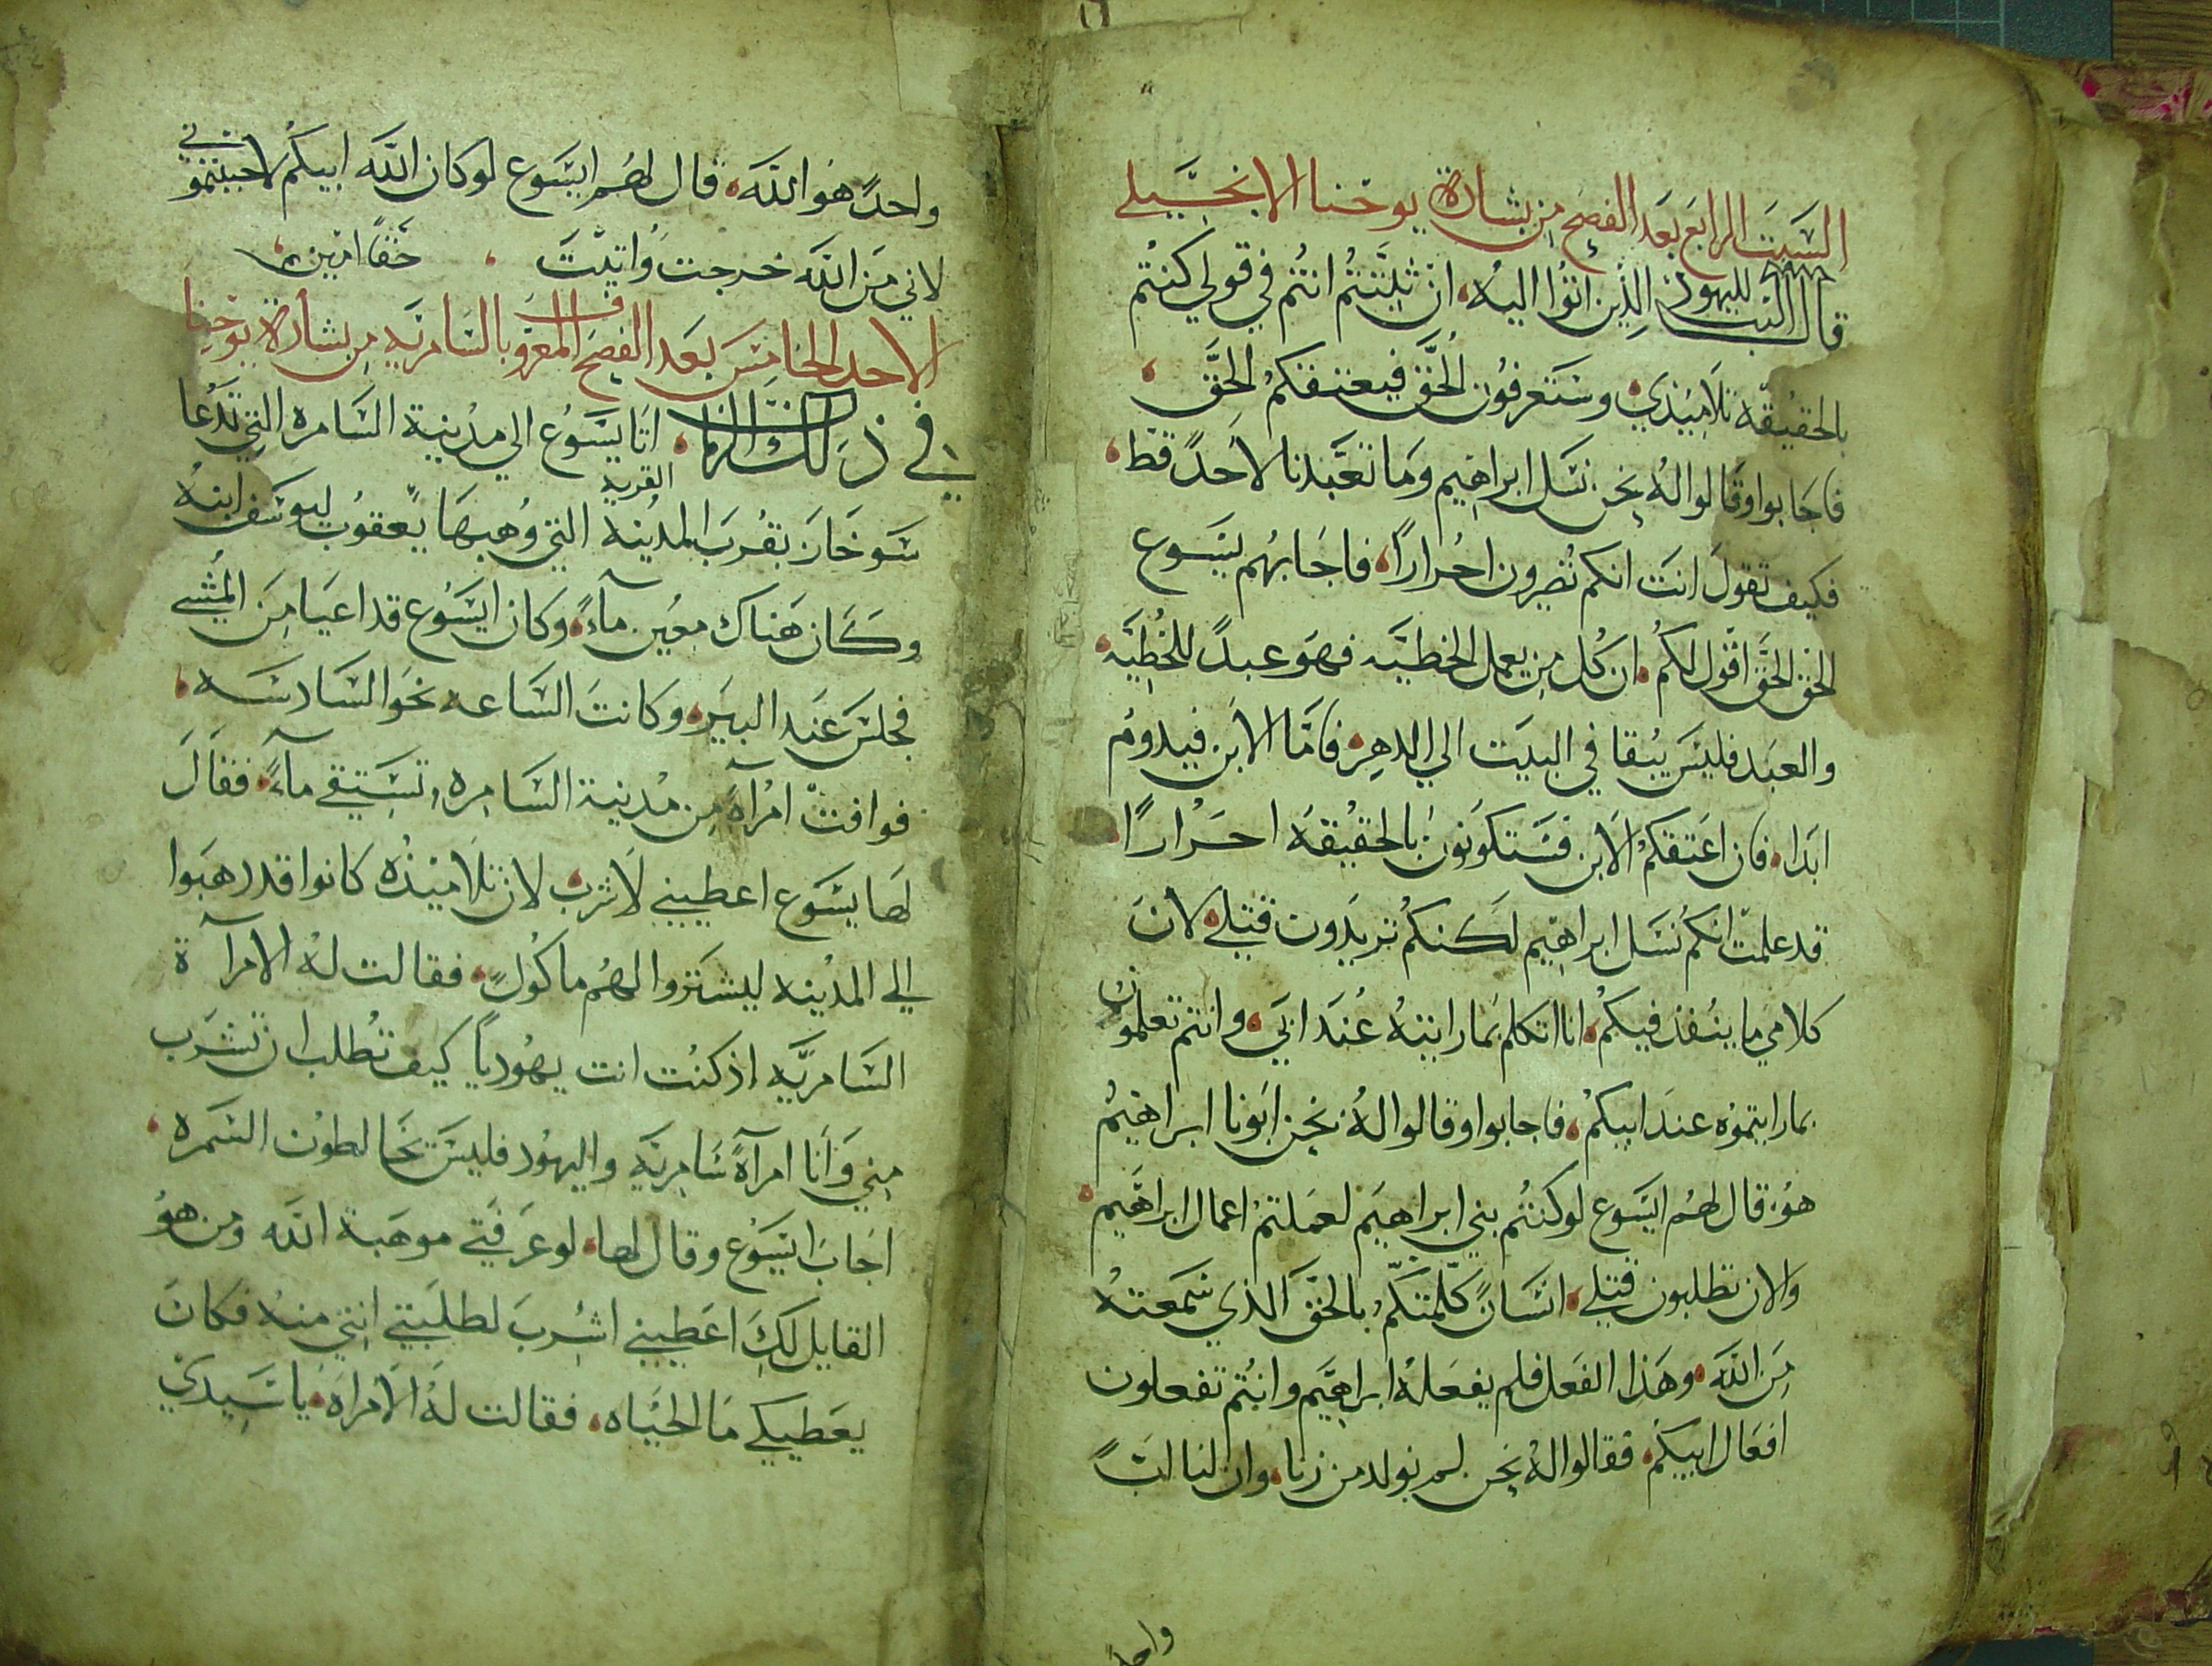 السبت الرابع بعد الفصح من بشارة يوحنا الانجيلي
قال الرب لليهود الذين اتوا اليه ان ثبتتم انتم في قولي كنتم
بالحقيقه تلاميذي وستعرفون الحق فيعتقكم الحق
فاجابوا وقالوا له نحن نسل ابراهيم وما تعبدنا لاحدً قط
فكيف تقول انت انكم تصيرون احراراً فاجابهم يسوع
الحق الحق اقول لكم ان كل من يعمل الخطيه فهو عبدً للخطيه
والعبد فليس يبقا في البيت الي الدهر فاما الابن فيدوم
ابدا فان اعتقكم الابن فستكونون بالحقيقه احرارًا
قد علمت انكم نسل ابراهيم لكنكم تريدون قتلي لان
كلامي ما ينفذ فيكم انا اتكلم بما رايته عند ابي وانتم تعلمون
بما رايتموه عند ابيكم فاجابوا وقالوا له نحن ابونا ابراهيم
هو قال لهم ايسوع لو كنتم بني ابراهيم لعملتم اعمال ابراهيم
والان تطلبون قتلي انسانً كلمتكم بالحق الذي سمعته
من الله وهذا الفعل فلم يفعله ابراهيم وانتم تفعلون
افعال ابيكم فقالوا له نحن لم نولد من زنا وان لنا ابً
واحدً
واحدً هو الله قال لهم ايسوع لو كان الله ابيكم لاحببتموني
لاني من الله خرجت واتيت حقاً امين
الاحد الخامس بعد الفصح المعروف بالسامريه من بشارة يوحنا
في ذلك الزمان اتا يسوع الي مدينة السامره التي تدعا
سوخار بقرب المدينه القريه التي وهبها يعقوب ليوسف ابنه
وكان هناك معين مآءً وكان ايسوع قد اعيا من المشي
فجلس عند البير وكانت الساعه نحو السادسه
فوافت امرآة من مدينة السامره تستقي مآءً فقال
لها يسوع اعطيني لاشرب لان تلاميذه كانوا قد دهبوا
الي المدينه ليشتروا لهم ماكولٍ فقالت له الامرآة
السامريه اذ كنت انت يهودياً كيف تطلب ان تشرب
مني وانا امرآةً سامريه واليهود فليس تخالطون السمره
اجاب ايسوع وقال لها لو عرفتي موهبة الله ومن هو
القايل لكِ اعطيني اشرب لطلبتي انتي منه فكان
يعطيكي ما الحياه فقالت له الامراه يا سيدي